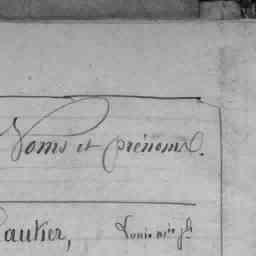 Noms et prénoms.
autier, Louis